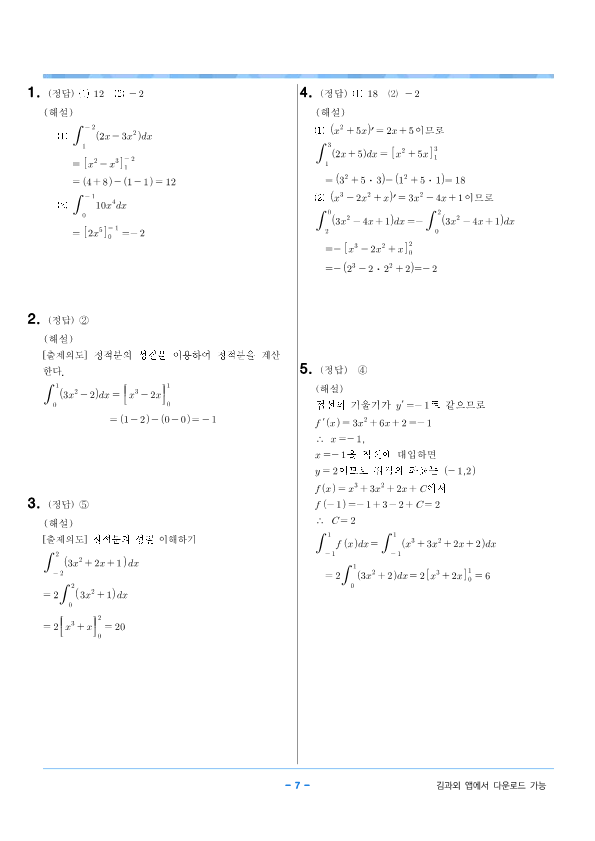 1. (정답) (1) 12 (2) -2
(해설)
(1) ∫₁⁻²(2x-3x²)dx
= [x²-x³]₁⁻²
= (4+8)-(1-1)=12
∫₀⁻¹10x⁴dx
= [2x⁵]₀⁻¹=-2
2. (정답) ②
(해설)
[출제의도] 정적분의 이용하여 정적분을 계산
한다.
∫₀¹(3x²-2)dx = [x³-2x]₀¹
= (1-2)-(0-0)=-1
3. (정답) ⑤
(해설)
[출제의도] 이해하기
∫₋₂²(3x²+2x+1)dx
= 2∫₀²(3x²+1)dx
= 2[x³+x]₀²=20
4. (정답) (1) 18 (2) -2
(해설)
(1) (x²+5x)′=2x+5이므로
∫₁³(2x+5)dx = [x²+5x]₁³
= (3²+5·3)-(1²+5·1)=18
(2) (x³-2x²+x)′=3x²-4x+1이므로
∫₂⁰(3x²-4x+1)dx=-∫₀²(3x²-4x+1)dx
=-[x³-2x²+x]₀²
=-(2³-2·2²+2)=-2
5. (정답) ④
(해설)
기울기가 y′=-1 같으므로
f′(x)=3x²+6x+2=-1
∴ x=-1,
x=-1을 대입하면
y=2이므로 (-1,2)
f(x)=x³+3x²+2x+C에서
f(-1)=-1+3-2+C=2
∴ C=2
∫₋₁¹f(x)dx=∫₋₁¹(x³+3x²+2x+2)dx
= 2∫₀¹(3x²+2)dx=2[x³+2x]₀¹=6
- 7 -
김과외 앱에서 다운로드 가능